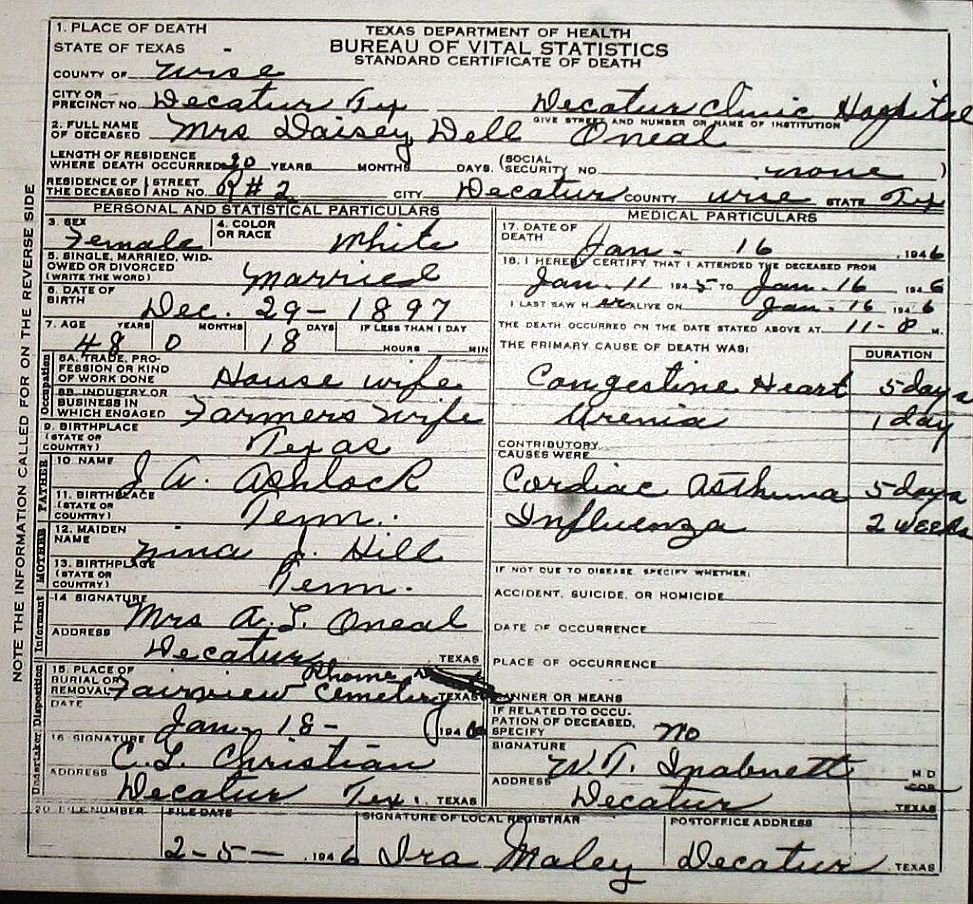 TEXAS DEPARTMENT OF HEALTH
BUREAU OF VITAL STATISTICS
STANDARD CERTIFICATE OF DEATH
1. PLACE OF DEATH
STATE OF TEXAS -
COUNTY OF Wise
CITY OR PRECINCT NO. Decatur Tex Decatur Clinic Hospital
GIVE STREET AND NUMBER OR NAME OF INSTITUTION
2. FULL NAME OF DECEASED Mrs Daisey Dell Oneal
LENGTH OF RESIDENCE WHERE DEATH OCCURRED 20 YEARS MONTHS DAYS. (SOCIAL SECURITY NO. none )
RESIDENCE OF THE DECEASED STREET AND NO. R#2 CITY Decatur COUNTY Wise STATE Tex
NOTE THE INFORMATION CALLED FOR ON THE REVERSE SIDE
PERSONAL AND STATISTICAL PARTICULARS
3. SEX Female 4. COLOR OR RACE White
5. SINGLE, MARRIED, WIDOWED OR DIVORCED (WRITE THE WORD) Married
6. DATE OF BIRTH Dec. 29- 1897
7. AGE YEARS MONTHS DAYS IF LESS THAN 1 DAY
48 0 18 HOURS MIN
Occupation
8A. TRADE, PROFESSION OR KIND OF WORK DONE House wife
8B. INDUSTRY OR BUSINESS IN WHICH ENGAGED Farmers Wife
9. BIRTHPLACE (STATE OR COUNTRY) Texas
FATHER
10. NAME J. A. Ashlock
11. BIRTHPLACE (STATE OR COUNTRY) Tenn.
MOTHER
12. MAIDEN NAME Nina J. Hill
13. BIRTHPLACE (STATE OR COUNTRY) Tenn.
Informant
14 SIGNATURE Mrs A. L. Oneal
ADDRESS Decatur TEXAS
Disposition
15. PLACE OF BURIAL OR REMOVAL Rhome
Fairview Cemetery TEXAS
DATE Jan. 18- 1946
Undertaker
16. SIGNATURE C. L. Christian
ADDRESS Decatur Tex. TEXAS
MEDICAL PARTICULARS
17. DATE OF DEATH Jan. 16 , 1946
18. I HEREBY CERTIFY THAT I ATTENDED THE DECEASED FROM
Jan. 11 1945 TO Jan. 16 1946
I LAST SAW H er ALIVE ON Jan. 16 1946
THE DEATH OCCURRED ON THE DATE STATED ABOVE AT 11-8 M.
THE PRIMARY CAUSE OF DEATH WAS: DURATION
Congestine Heart 5 days
Uremia 1 day
CONTRIBUTORY CAUSES WERE
Cordiac Asthma 5 days
Influenza 2 weeks
IF NOT DUE TO DISEASE, SPECIFY WHETHER:
ACCIDENT, SUICIDE, OR HOMICIDE
DATE OF OCCURRENCE
PLACE OF OCCURRENCE
MANNER OR MEANS
IF RELATED TO OCCUPATION OF DECEASED, SPECIFY No
SIGNATURE W. T. Inabnett M.D.
ADDRESS Decatur TEXAS
20. FILE NUMBER FILE DATE SIGNATURE OF LOCAL REGISTRAR POSTOFFICE ADDRESS
2-5- , 1946 Ira Maley Decatur , TEXAS